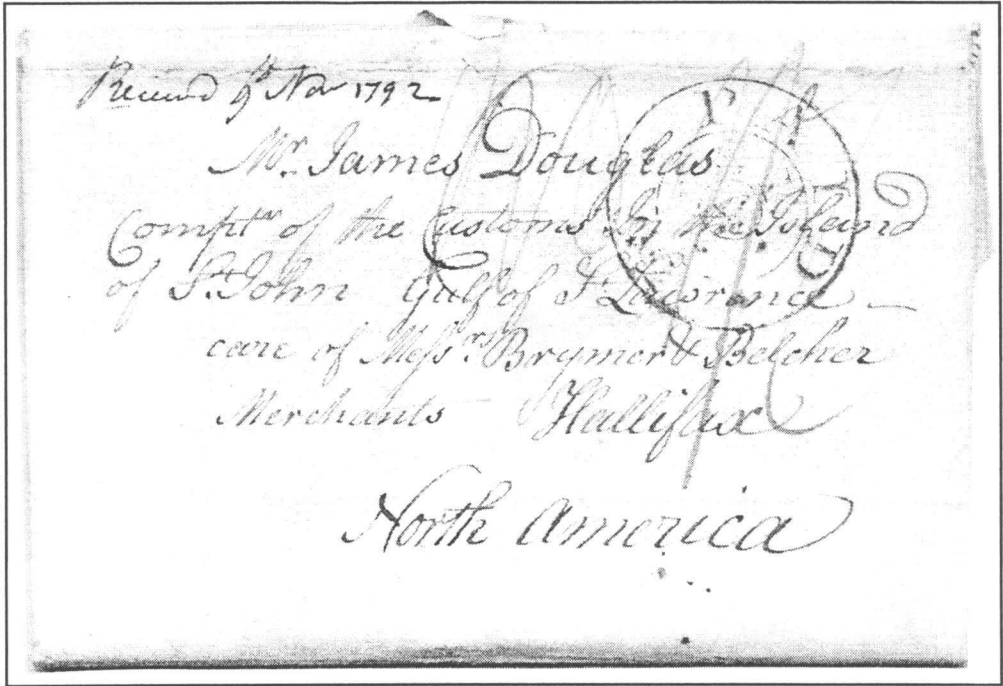 Received 9th Nov 1792
Mr. James Douglas
Comptr of the Customs In the Island
of St. John Gulf of St Lawrence
care of Messrs Brymer & Belcher
Merchants Hallifax
North America
PAID